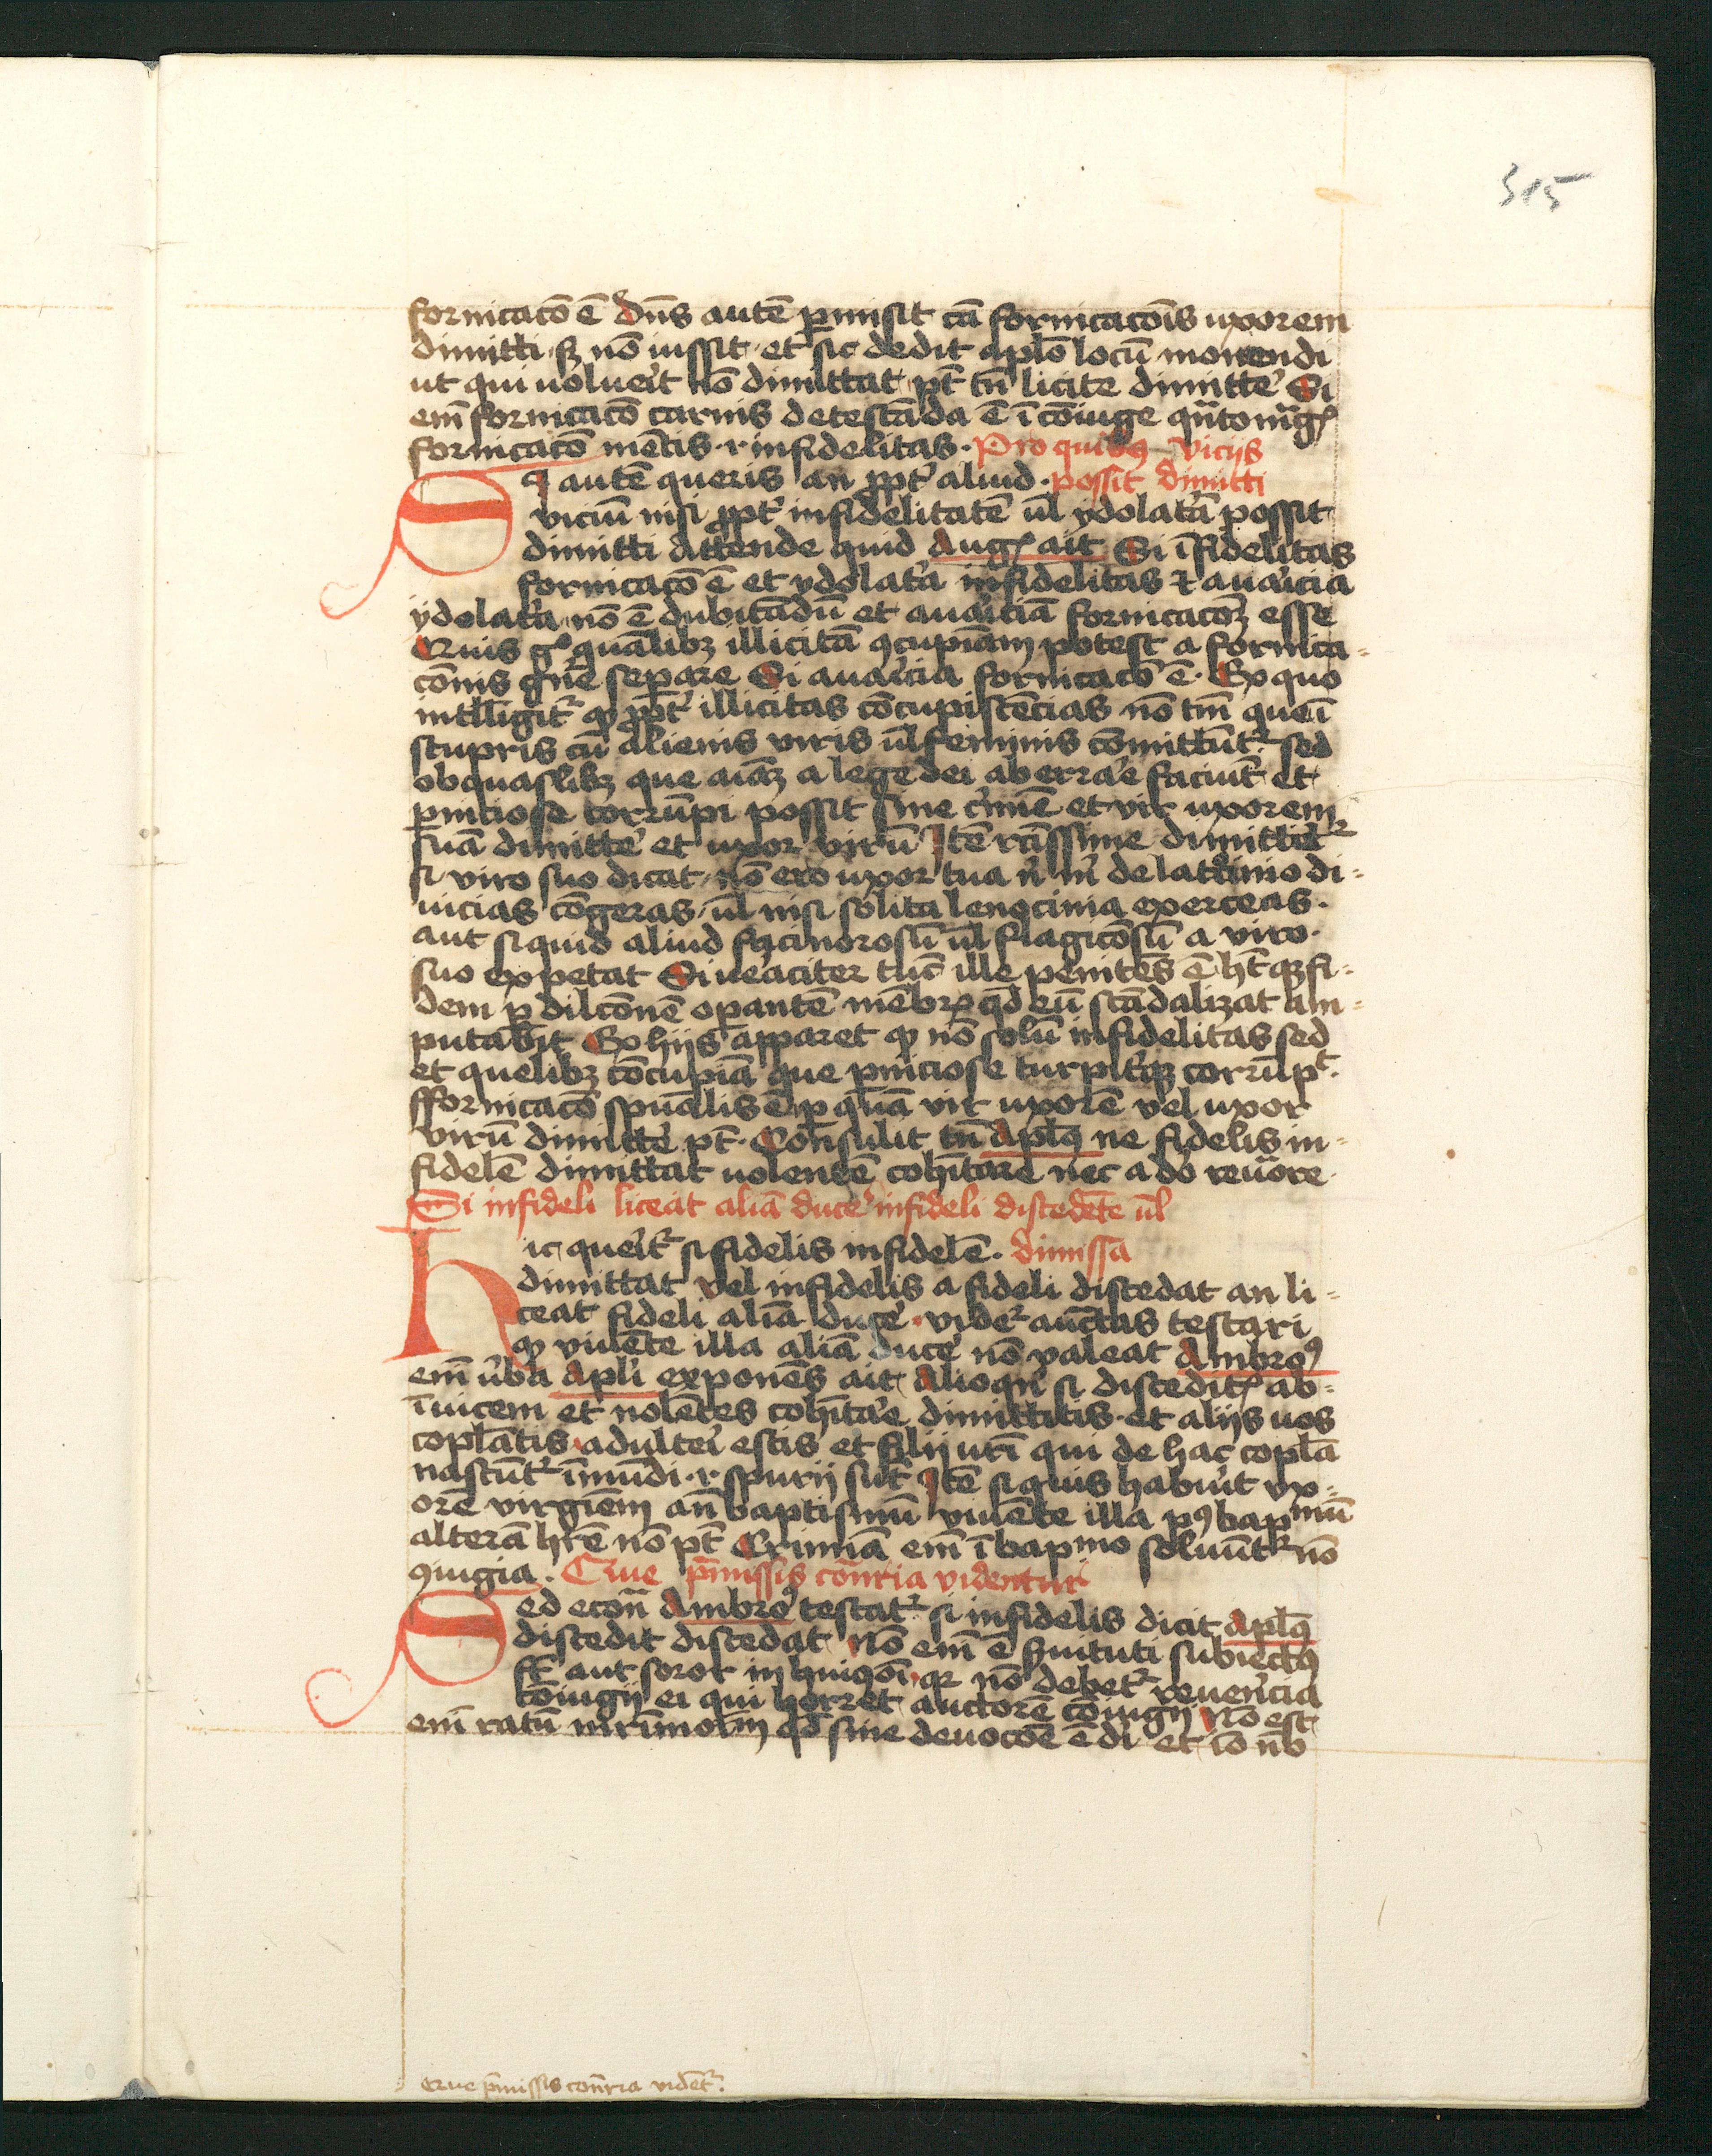 315
fornicacō ē Dn̄s autē ꝑmisit cā fornicacōīs uxorem
dimitti sꝫ nō iussit et sic dedit aplo locū monendi
ut qui uolueīt nō dimittat pt̄ tn̄ licite dimitte͛ Si
em̄ fornicacō carnis detestāda ē ī cōiuge qn̄to mag̛
fornicacō mētis ⁊ infidelitas · Pro quibꝯ vicijs
SI autē queris an ꝓpt͛ aliud · possit dimitti
viciū nisi ꝓpt͛ infidelitatē ul̄ ydolat͛ā possit
dimitti Attende quid Aug̛ ait Si īfidelitas
fornicacō ē et ydolat͛a infidelitas ⁊ auaīcia
ydolat͛a nō ē dubitādū et auaīciā fornicacōꝫ esse
Quis gͦ quālibꝫ illicitā ꝯcupiām potest a fornica-
cōnis gn̄e sepaꝛe Si auaīcia fornicacō ē · Ex quo
intll̄igit͛ ꝙ ꝓpt͛ illicitas cōcupiscēcias nō tm̄ que ī
stupris cū alienis viris ul̄ feminis cōmittūt͛ sed
ob quaslibꝫ que aīaꝫ a lege dei aberra͛e faciūt et
ꝑniciose corrūpi possit sine c͛mīe et vir uxorem
suā dimitte͛ et uxor virū Itē rc̄issime dimittit͛
si viro suo dicat nō ero uxor tua n̄ m̄ de latrocinio di-
uicias cōgeras ul̄ nisi solita lenocinia exerceas ·
aut si quid aliud facinorosū ul̄ flagicōsū a viro ·
suo expetat Si ueaciter tūc ille penitēs ē h̄t qꝫ fi-
dem ꝑ dilcōnē opantē mēbrꝫ qd̄ eū scādalizat am-
putabit Ex hijs apparet ꝙ nō solū infidelitas sed
et quelibꝫ cōcupiā que ꝑniciose turpit͛qꝫ corrūpͭ ·
fforniacō spūalis ē ꝑ quā vir uxorē vel uxor
virū dimitte͛ pt̄ · Consulit tn̄ Aplꝯ ne fidelis in-
fidelē dimittat uolentē cohītare nec a dō reuocare ·
Si infideli liceat aliā duce͛ infideli discedēte ul̄
Hic queīt͛ si fidelis infidelē · dimissa
dimittat vel infidelis a fideli discedat an li-
ceat fideli aliā duce͛ · vide͛ auctas testari
ꝙ viuēte illa aliā duce͛ nō valeat Ambroꝰ
em̄ u͛ba Apli exponēs ait Alioqn̄ si discedit͛ ab-
īuicem et nolētes cohīta͛e dimittitis · et alijs uos
coplātis adulteī estis et filij urī qui de hac coplā
nascūt͛ īmūdi · ⁊ spurij sūt Itē si quis habu͛it ux-
orē virgiēm an̄ baptismū viuēte illa pꝰ bapmū
alterā hr̄e nō pt̄ Crimiā em̄ ī bapmo soluūt͛ nō
ꝯiugia · Que p̄missis cōn̄ria videntur
Sed econ̄ Ambroꝰ testat͛ si infidelis dicit Aplꝯ
discedit discedat nō em̄ ē s͛uituti subiectꝯ
fr̄ aut soror in huiꝯōi qꝛ nō debet͛ reuer͛ncia
cōiugij ei qui horret auctorē cōiugij Nō est
em̄ ratū mr̄imoīm qd̄ sine deuocōe ē di et iō nō
Que p̄missis cōn̄ria vidēt͛